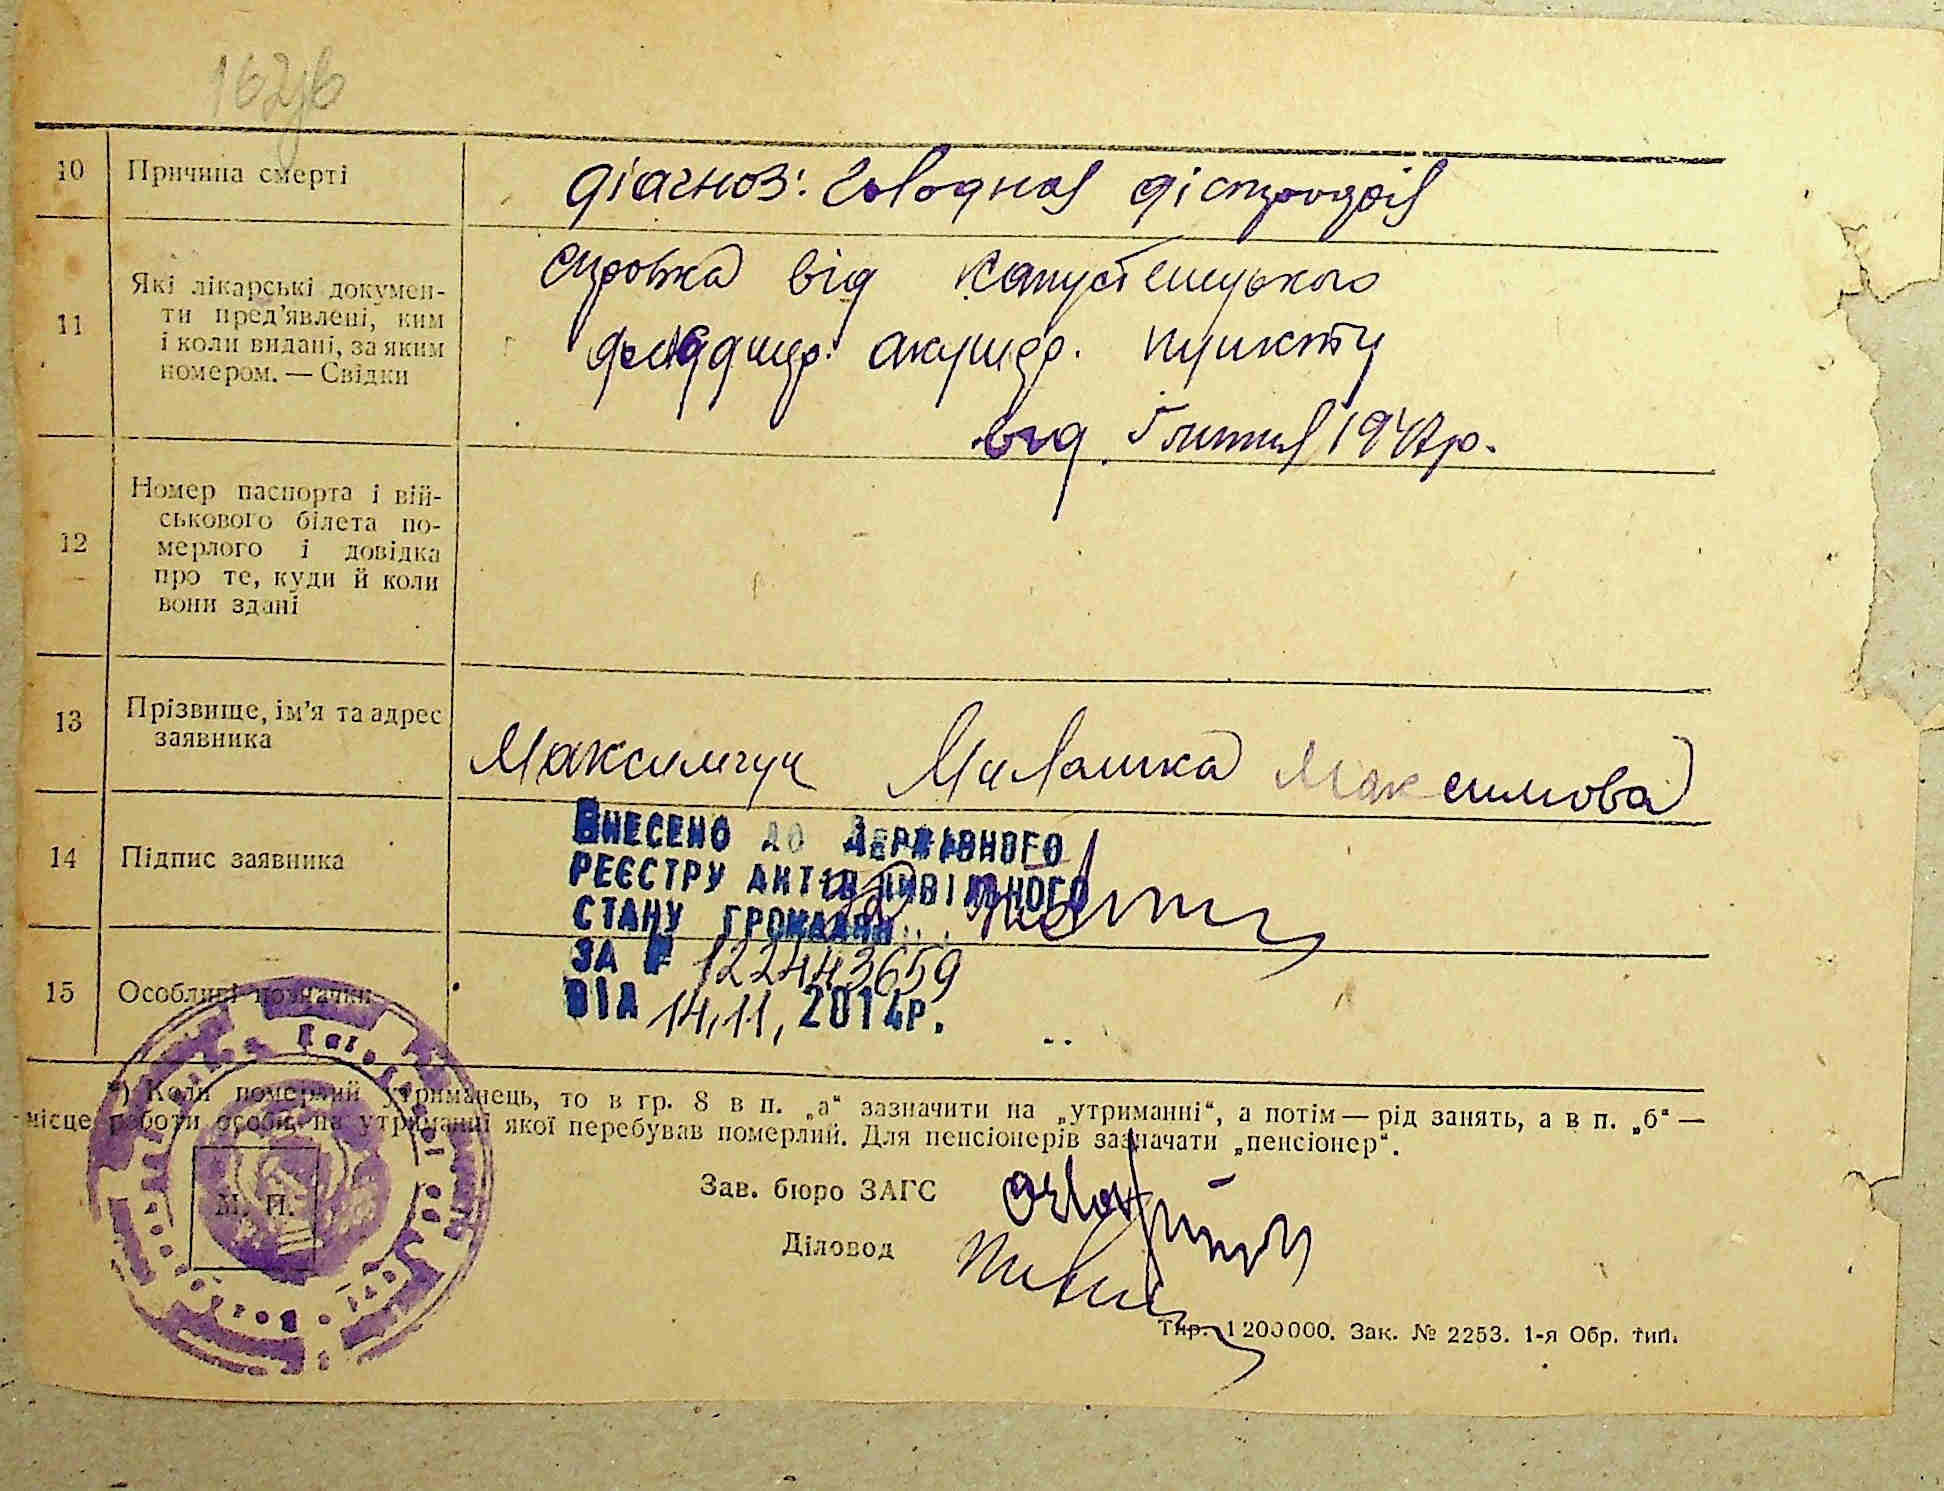 10 Причина смерті діагноз: голодная дістрофія
11 Які лікарські докумен-
ти пред'явлені, ким
і коли видані, за яким
номером. — Свідки
справка від Капустинецького
фельдшер. акушер. пункту
від 5 липня 1947 р.
12 Номер паспорта і вій-
ськового білета по-
мерлого і довідка
про те, куди й коли
вони здані
13 Прізвище, ім'я та адрес
заявника
Максимчук Малашка Максимова
14 Підпис заявника
ВНЕСЕНО ДО ДЕРЖАВНОГО
РЕЄСТРУ АКТІВ ЦИВІЛЬНОГО
СТАНУ ГРОМАДЯН
ЗА № 122443659
ВІД 14.11, 2014Р.
15 Особливі позначки
*) Коли померлий утриманець, то в гр. 8 в п. „а“ зазначити на „утриманні“, а потім — рід занять, а в п. „б“ —
місце работи особи, на утриманні якої перебував померлий. Для пенсіонерів зазначати „пенсіонер“.
М. П.
Зав. бюро ЗАГС
Діловод
Тир. 1200000. Зак. № 2253. 1-я Обр. тип.